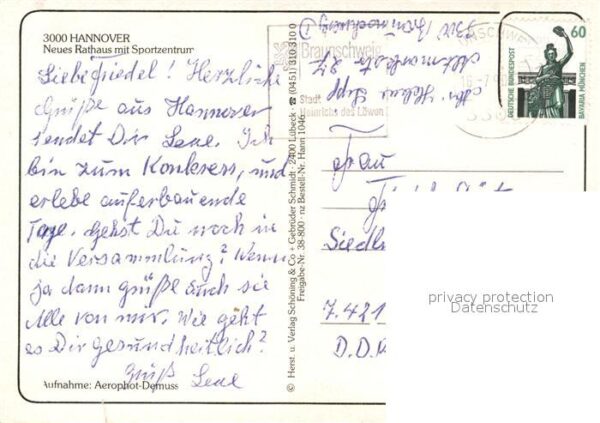 3000 HANNOVER
Neues Rathaus mit Sportzentrum
Liebe Friedel! Herzliche
Grüße aus Hannover
sendet Dir Lene. Ich
bin zum Konkress, und
erlebe auferbauende
Tage. Gehst Du noch in
die Versammlung? Wenn
ja dann grüße auch sie
Alle von mir. Wie geht
es Dir gesundheitlich?
Gruß Lene
Aufnahme: Aerophot-Demuss
© Herst. u. Verlag Schöning & Co + Gebrüder Schmidt · 2400 Lübeck · ☎ (0451) 310 310 0
Freigabe-Nr. 38-800 · nz Bestell-Nr. Hann 1046
Braunschweig
Stadt
Heinrichs des Löwen
60
DEUTSCHE BUNDESPOST
BAVARIA MÜNCHEN
Frau
Siedl
7.421
D.D.
privacy protection
Datenschutz